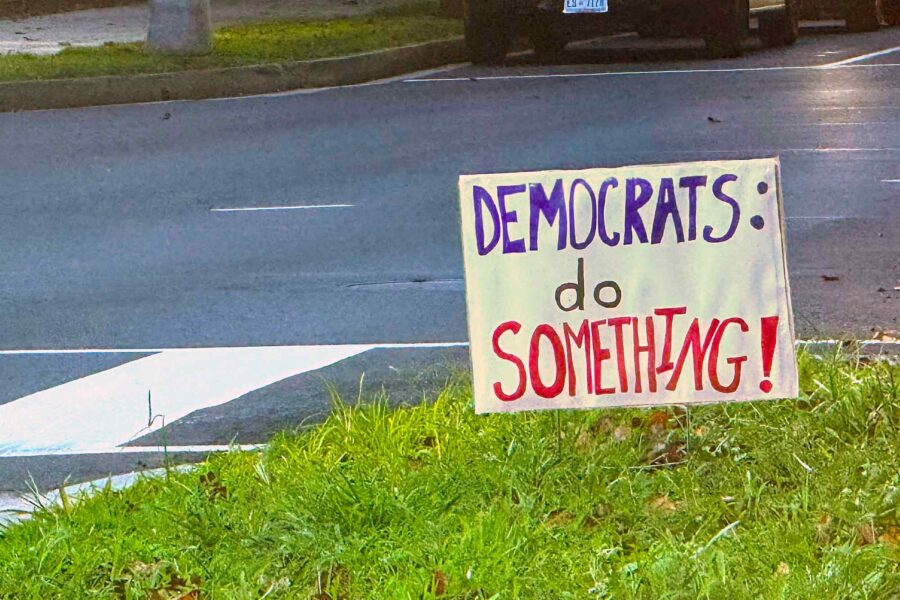 DEMOCRATS:
do
SOMETHING!